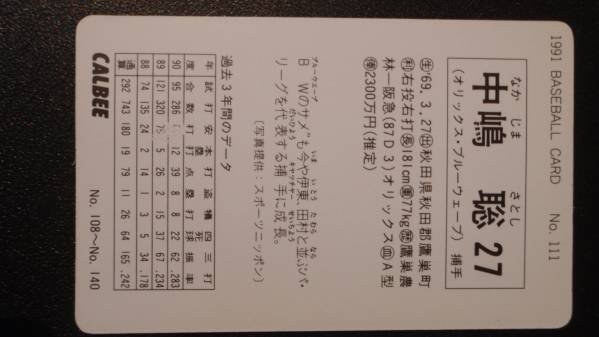 1991 BASEBALL CARD No. 111
なか じま さとし
中嶋 聡 27
(オリックス・ブルーウェーブ) 捕手
㊤'69. 3. 27㊦秋田県秋田郡鷹巣町
㊒右投右打㊐181cm㊍77kg㊎鷹巣農
林―阪急(87D3)オリックス㊋A型
2300万円(推定)
ブルーウェーブ いま いとう たむら なら
B Wのサメ"も今や伊東、田村と並ぶパ・
だいひょう キャッチャー せいちょう
リーグを代表する捕手に成長。
(写真提供:スポーツニッポン)
過去3年間のデータ
年度 試合 打数 安打 本塁打 打点 盗塁 犠打 四死球 三振 打率
90 95 286 12 39 8 8 22 62 .283
89 121 320 75 5 26 2 15 37 67 .234
88 74 135 24 2 14 1 3 5 34 .178
通算 292 743 180 19 79 11 26 64 165 .242
CALBEE No. 108～No. 140